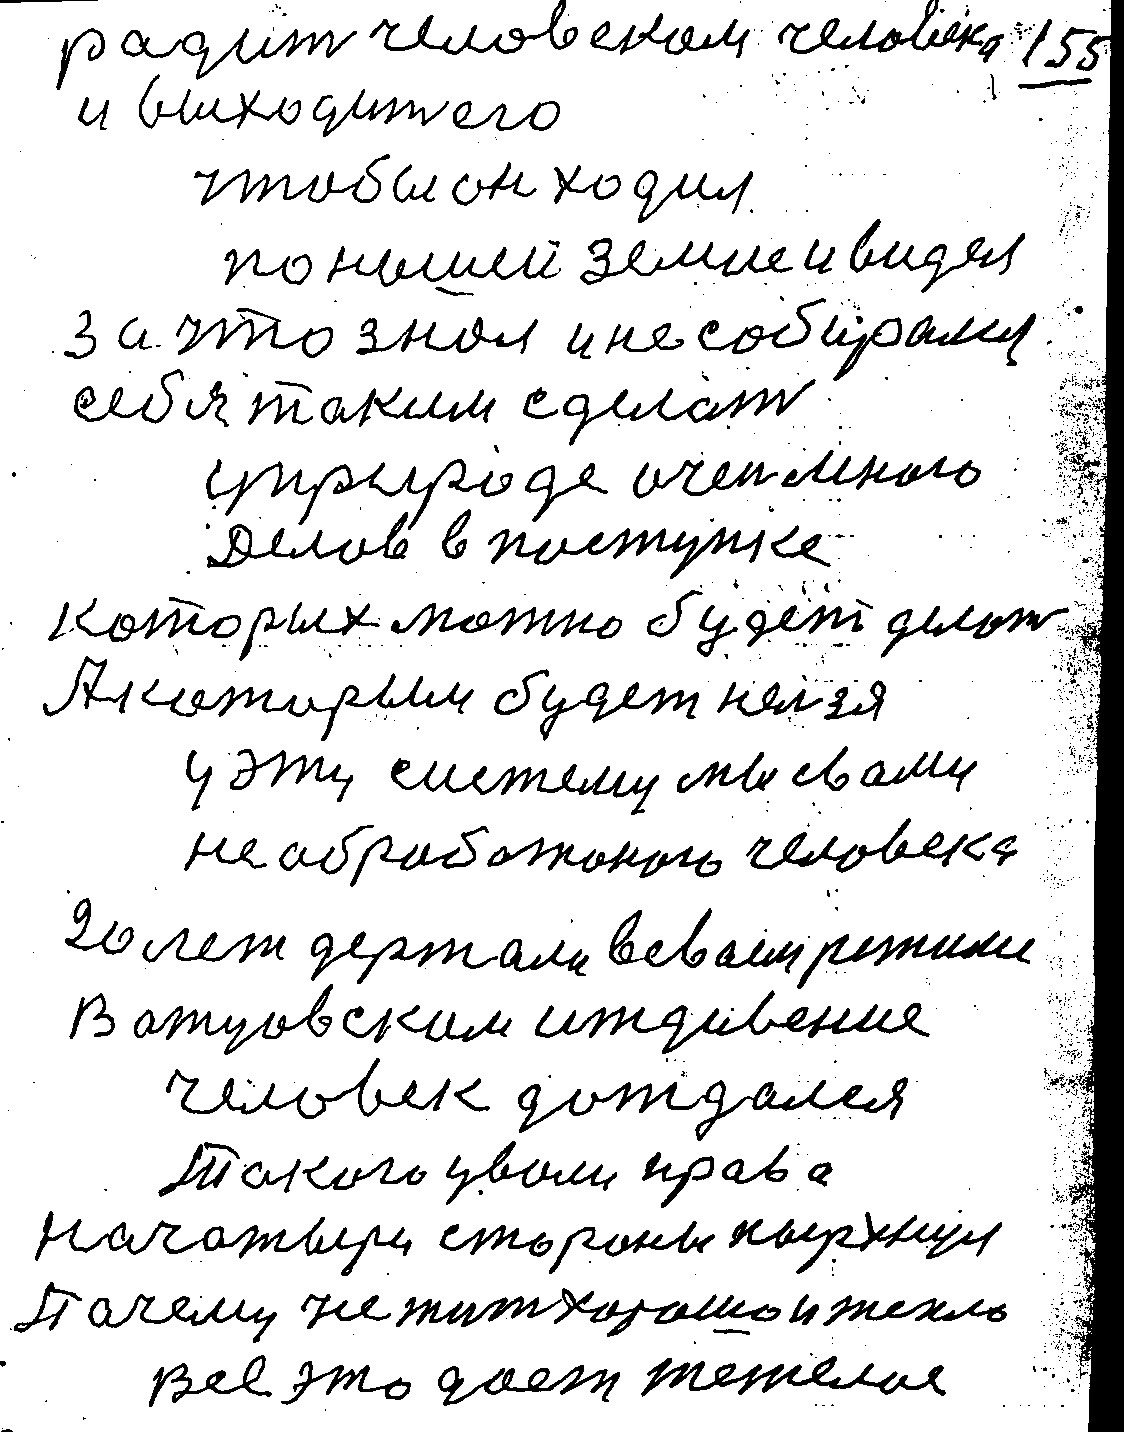 радит человеком человека 155
и выходит его
чтобы он ходил
по нышей земле и видел
за что знал и не собирали
себя таким сделат
у прыроде очен много
Делов в поступке
которых можно будет делат
А каторым будет нелзя
у эту систему мы свами
не обработоного человека
20 лет держали в сваем режиме
В отцовском иждивение
человек дождался
Такого у воли права
на чатыри стороны пырхнул
Пачему не жит хорошо и тепло
все это дает тежелое